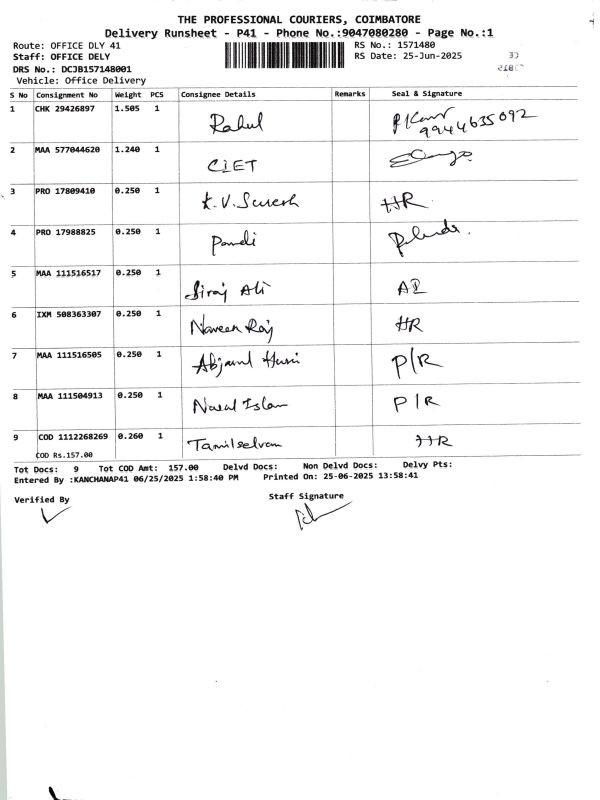 THE PROFESSIONAL COURIERS, COIMBATORE
Delivery Runsheet - P41 - Phone No.:9047080280 - Page No.:1
Route: OFFICE DLY 41 RS No.: 1571480
Staff: OFFICE DELY RS Date: 25-Jun-2025
DRS No.: DCJB157148001
Vehicle: Office Delivery
S No Consignment No Weight PCS Consignee Details Remarks Seal & Signature
1 CHK 29426897 1.505 1 Rahul 9944635092
2 MAA 577044620 1.240 1 CIET
3 PRO 17809410 0.250 1 K.V. Suresh HR
4 PRO 17988825 0.250 1 Pandi
5 MAA 111516517 0.250 1 Siraj Ali
6 IXM 508363307 0.250 1 Naveen Raj HR
7 MAA 111516505 0.250 1 P/R
8 MAA 111504913 0.250 1 Islam P/R
9 COD 1112268269 0.260 1 Tamilselvan HR
COD Rs.157.00
Tot Docs: 9 Tot COD Amt: 157.00 Delvd Docs: Non Delvd Docs: Delvy Pts:
Entered By :KANCHANAP41 06/25/2025 1:58:40 PM Printed On: 25-06-2025 13:58:41
Verified By Staff Signature